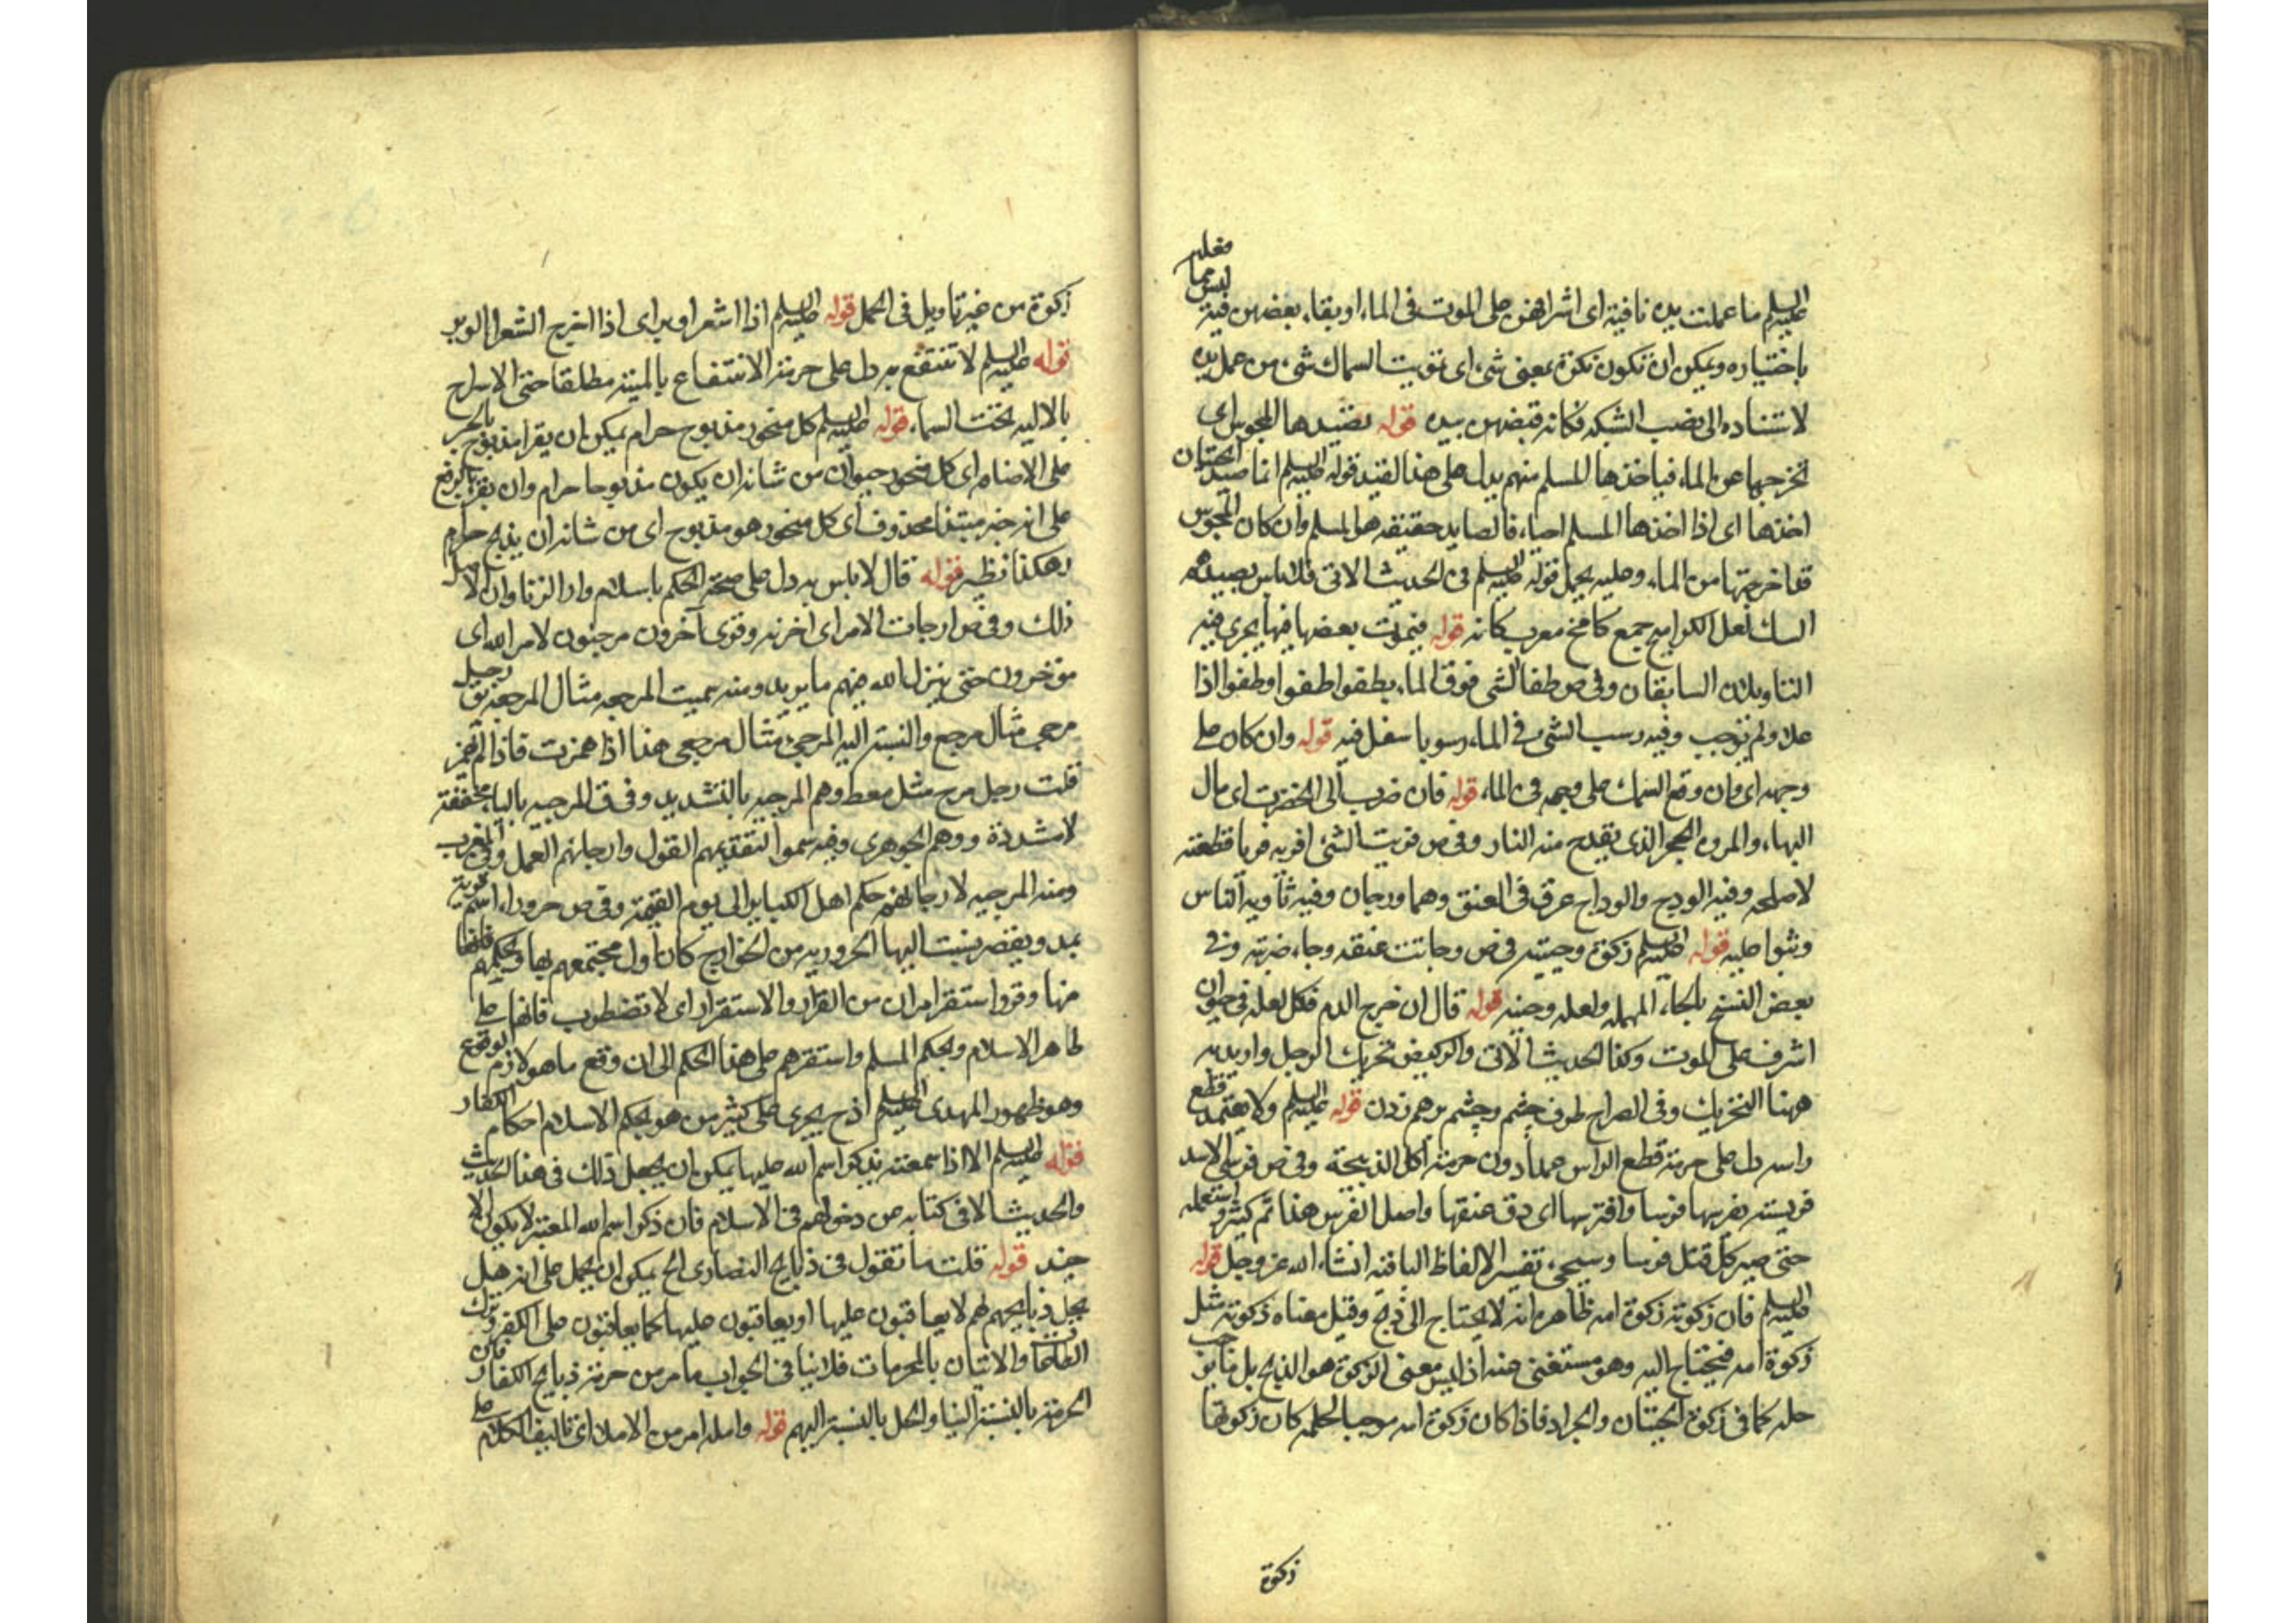 مغلبه
ليس مما
عليه السلم ما عملت يده نافية اى اشرافهن على الموت فى الماء او بقاء بعضهن فيه
باختياره ويمكن ان تكون نكرة بمعنى شىء اى تفويت السماك شىء من عمل يده
لاستناده الى نصب الشبكه فكانه قبضهن بيده قوله يصيدها المجوس اى
تخرجها عن الماء فياخذها المسلم منهم يدل على هذا القيد قوله عليه السلم انما صيد الحيتان
اخذها اى اذا اخذها المسلم احياء فالصايد حقيقة هو المسلم وان كان المجوس
قد اخرجتها من الماء وعليه يحمل قوله عليه السلم فى الحديث الاتى فلا باس بصيدهم
السمك لعل الكواميخ جمع كامخ معرب كانه قوله فيموت بعضها فيها يجرى فيه
التاويلان السابقان وفى ص طفا الشى فوق الماء يطفو طفوا وطفوا اذا
علا ولم يرسب وفيه رسب الشى فى الماء رسوبا سفل فيه قوله وان كان على
وجهه اى وان وقع السمك على وجهه فى الماء قوله فان ضرب الى الخضرة اى مال
اليها، والمروه الحجر الذى يقدح منه النار وفى ص فريت الشئ افريه فريا قطعته
لاصلحه وفيه الودج والوداج عرق فى العنق وهما ودجان وفيه تاويه الناس
وثبوا عليه قوله عليه السلم زكوة وحيته فى ص وجات عنقه وجاء ضربته وفى
بعض النسخ بالحاء المهمله ولعله وحيه قوله قال ان خرج الدم فكل لعله فى حيوان
اشرف على الموت وكذا الحديث الاتى والركض تحريك الرجل واريد به
ههنا التحريك وفى الصراح طرف چشم وچشم برهم زدن قوله عليه السلم ولا يعتمد قطع
راسه دل على حرمة قطع الراس عمدا دون حرمة اكل الذبيحة وفى ص فرس الاسد
فريسته يفرسها فرسا وافترسها اى دق عنقها واصل الفرس هذا ثم كثر واستعمله
حتى صير كل قتل فرسا وسيجىء تفسير الالفاظ الباقية انشاء الله عز وجل قوله
عليه السلم فان زكوته زكوة امه ظاهره انه لا يحتاج الى ذبح وقيل معناه زكوته مثل
زكوة امه فيحتاج اليه وهو مستغنى عنه اذ ليس معنى الزكوة هو الذبح بل ما يوجب
حله كما فى زكوة الحيتان والجراد فاذا كان زكوة امه موجبا لحله كان زكوتها
زكوة
زكوة من غير تاويل فى الحمل قوله عليه السلم اذا اشعر او بر اى اذا اخرج الشعر او الوبر
قوله عليه السلم لا تنتفع به دل على حرمة الانتفاع بالميتة مطلقا حتى الاسراج
بالاليه تحت السماء قوله عليه السلم كل منحور مذبوح حرام يمكن ان يقرا مذبوح بالجر
على الاضافه اى كل منحور حيوان من شانه ان يكون مذبوحا حرام وان يقرا بالرفع
على انه خبر مبتدا محذوف اى كل منحور هو مذبوح اى من شانه ان يذبح حرام
وهكذا نظيره قوله قال لا باس به دل على صحة الحكم باسلام ولد الزنا وان لا
ذلك وفى ص ارجات الامر اى اخرته وقرى آخرون مرجئون لامر الله اى
مؤخرون حتى ينزل الله فيهم ما يريد ومنه سميت المرجعه مثال المرجعه يق رجل
مرجى مثال مرجع والنسبة اليه المرجئ مثال مرجعى هذا اذا همزت فاذا لم تهمز
قلت رجل مرج مثل معط وهم المرجيه بالتشديد وفى ق المرجيه بالياء مخففة
لا مشددة ووهم الجوهرى وفيه سموا لتقديمهم القول وارجائهم العمل وفى المغرب
ومنه المرجيه لارجائهم حكم اهل الكباير الى يوم القيمة وفى ص حروراء اسم قرية
يمد ويقصر نسبت اليها الحروريه من الخوارج كان اول مجتمعهم بها وتحكيمهم
منها وقروا استقرا من القرار والاستقرار اى لا تضطرب فانها على
ظاهر الاسلام وبحكم المسلم واستقرهم على هذا الحكم الى ان وقع ما هو لازم الوقوع
وهو ظهور المهدى عليه السلم اذ ح يجرى على كثير من هو بحكم الاسلام احكام الكفار
قوله عليه السلم الا اذا سمعته يذكر اسم الله عليها يمكن ان يجعل ذلك فى هذا الحديث
والحديث الا فى كتابه عن دخولهم فى الاسلام فان ذكر اسم الله المعتبر لا يكون الا
حينئذ قوله قلت ما تقول فى ذبايح النصارى الخ يمكن ان يحمل على انه هل
يحل ذبايحهم لهم لا يعاقبون عليها او يعاقبون عليها كما يعاقبون على الكفر وترك
الطاعات والاتيان بالمحرمات فلا ينافى الجواب ما مر من حرمة ذبايح الكفار فان
الحرمة بالنسبة الينا والحل بالنسبة اليهم قوله وامله امر من الاملاء اى تاليف الكلام على